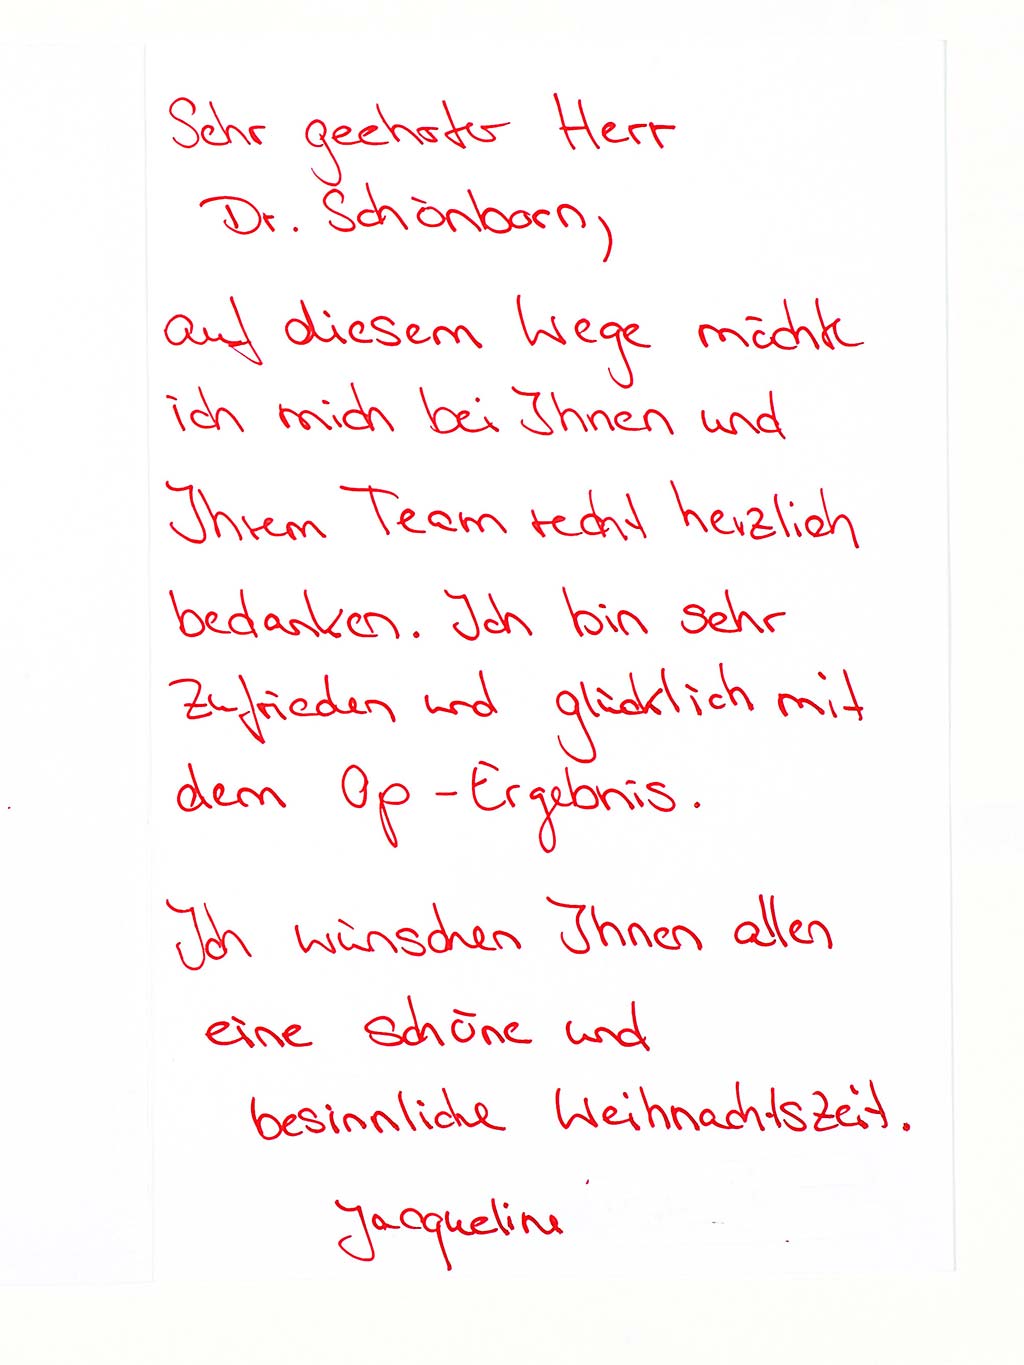 Sehr geehrter Herr
Dr. Schönborn,
auf diesem Wege möchte
ich mich bei Ihnen und
Ihrem Team recht herzlich
bedanken. Ich bin sehr
zufrieden und glücklich mit
dem Op-Ergebnis.
Ich wünschen Ihnen allen
eine schöne und
besinnliche Weihnachtszeit.
Jacqueline